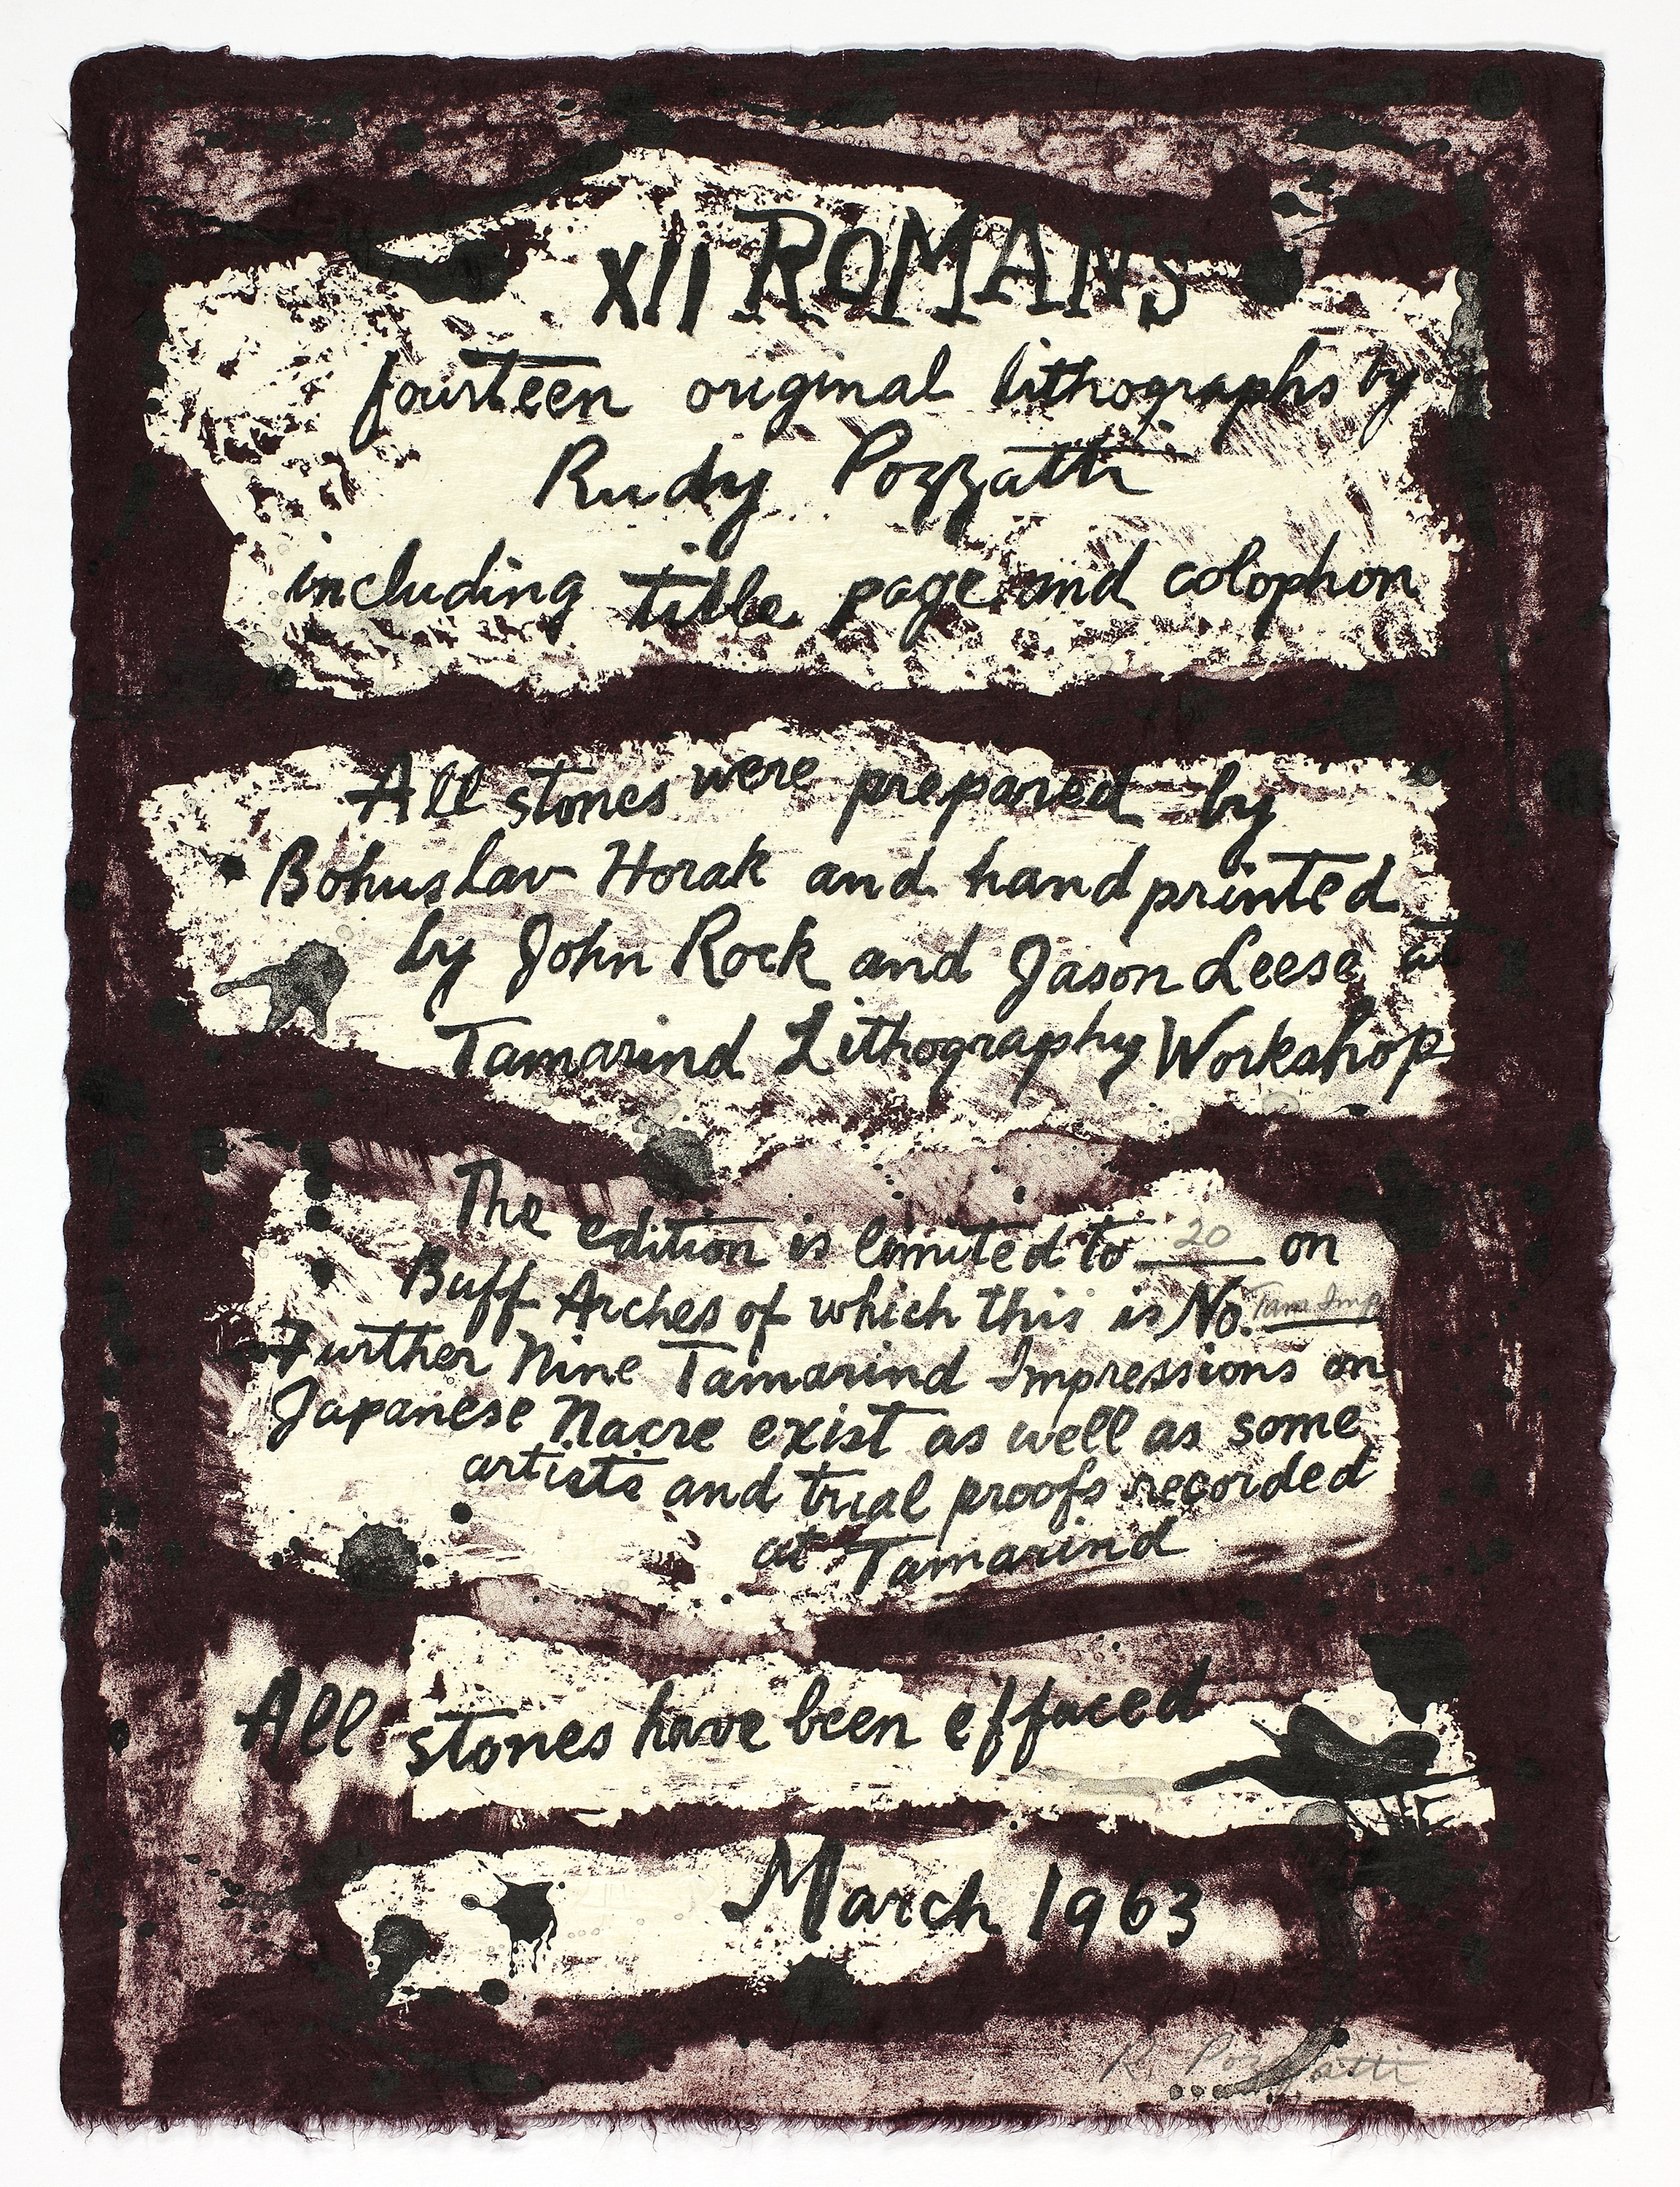 XII ROMANS
fourteen original lithographs by
Rudy Pozzatti
including title page and colophon
All stones were prepared by
Bohuslav Horak and hand printed
by John Rock and Jason Leese at
Tamarind Lithography Workshop
The edition is limited to 20 on
Buff Arches of which this is No. Tam. Imp
Further Nine Tamarind Impressions on
Japanese Nacre exist as well as some
artists and trial proofs recorded
at Tamarind
All stones have been effaced
March 1963
R. Pozzatti